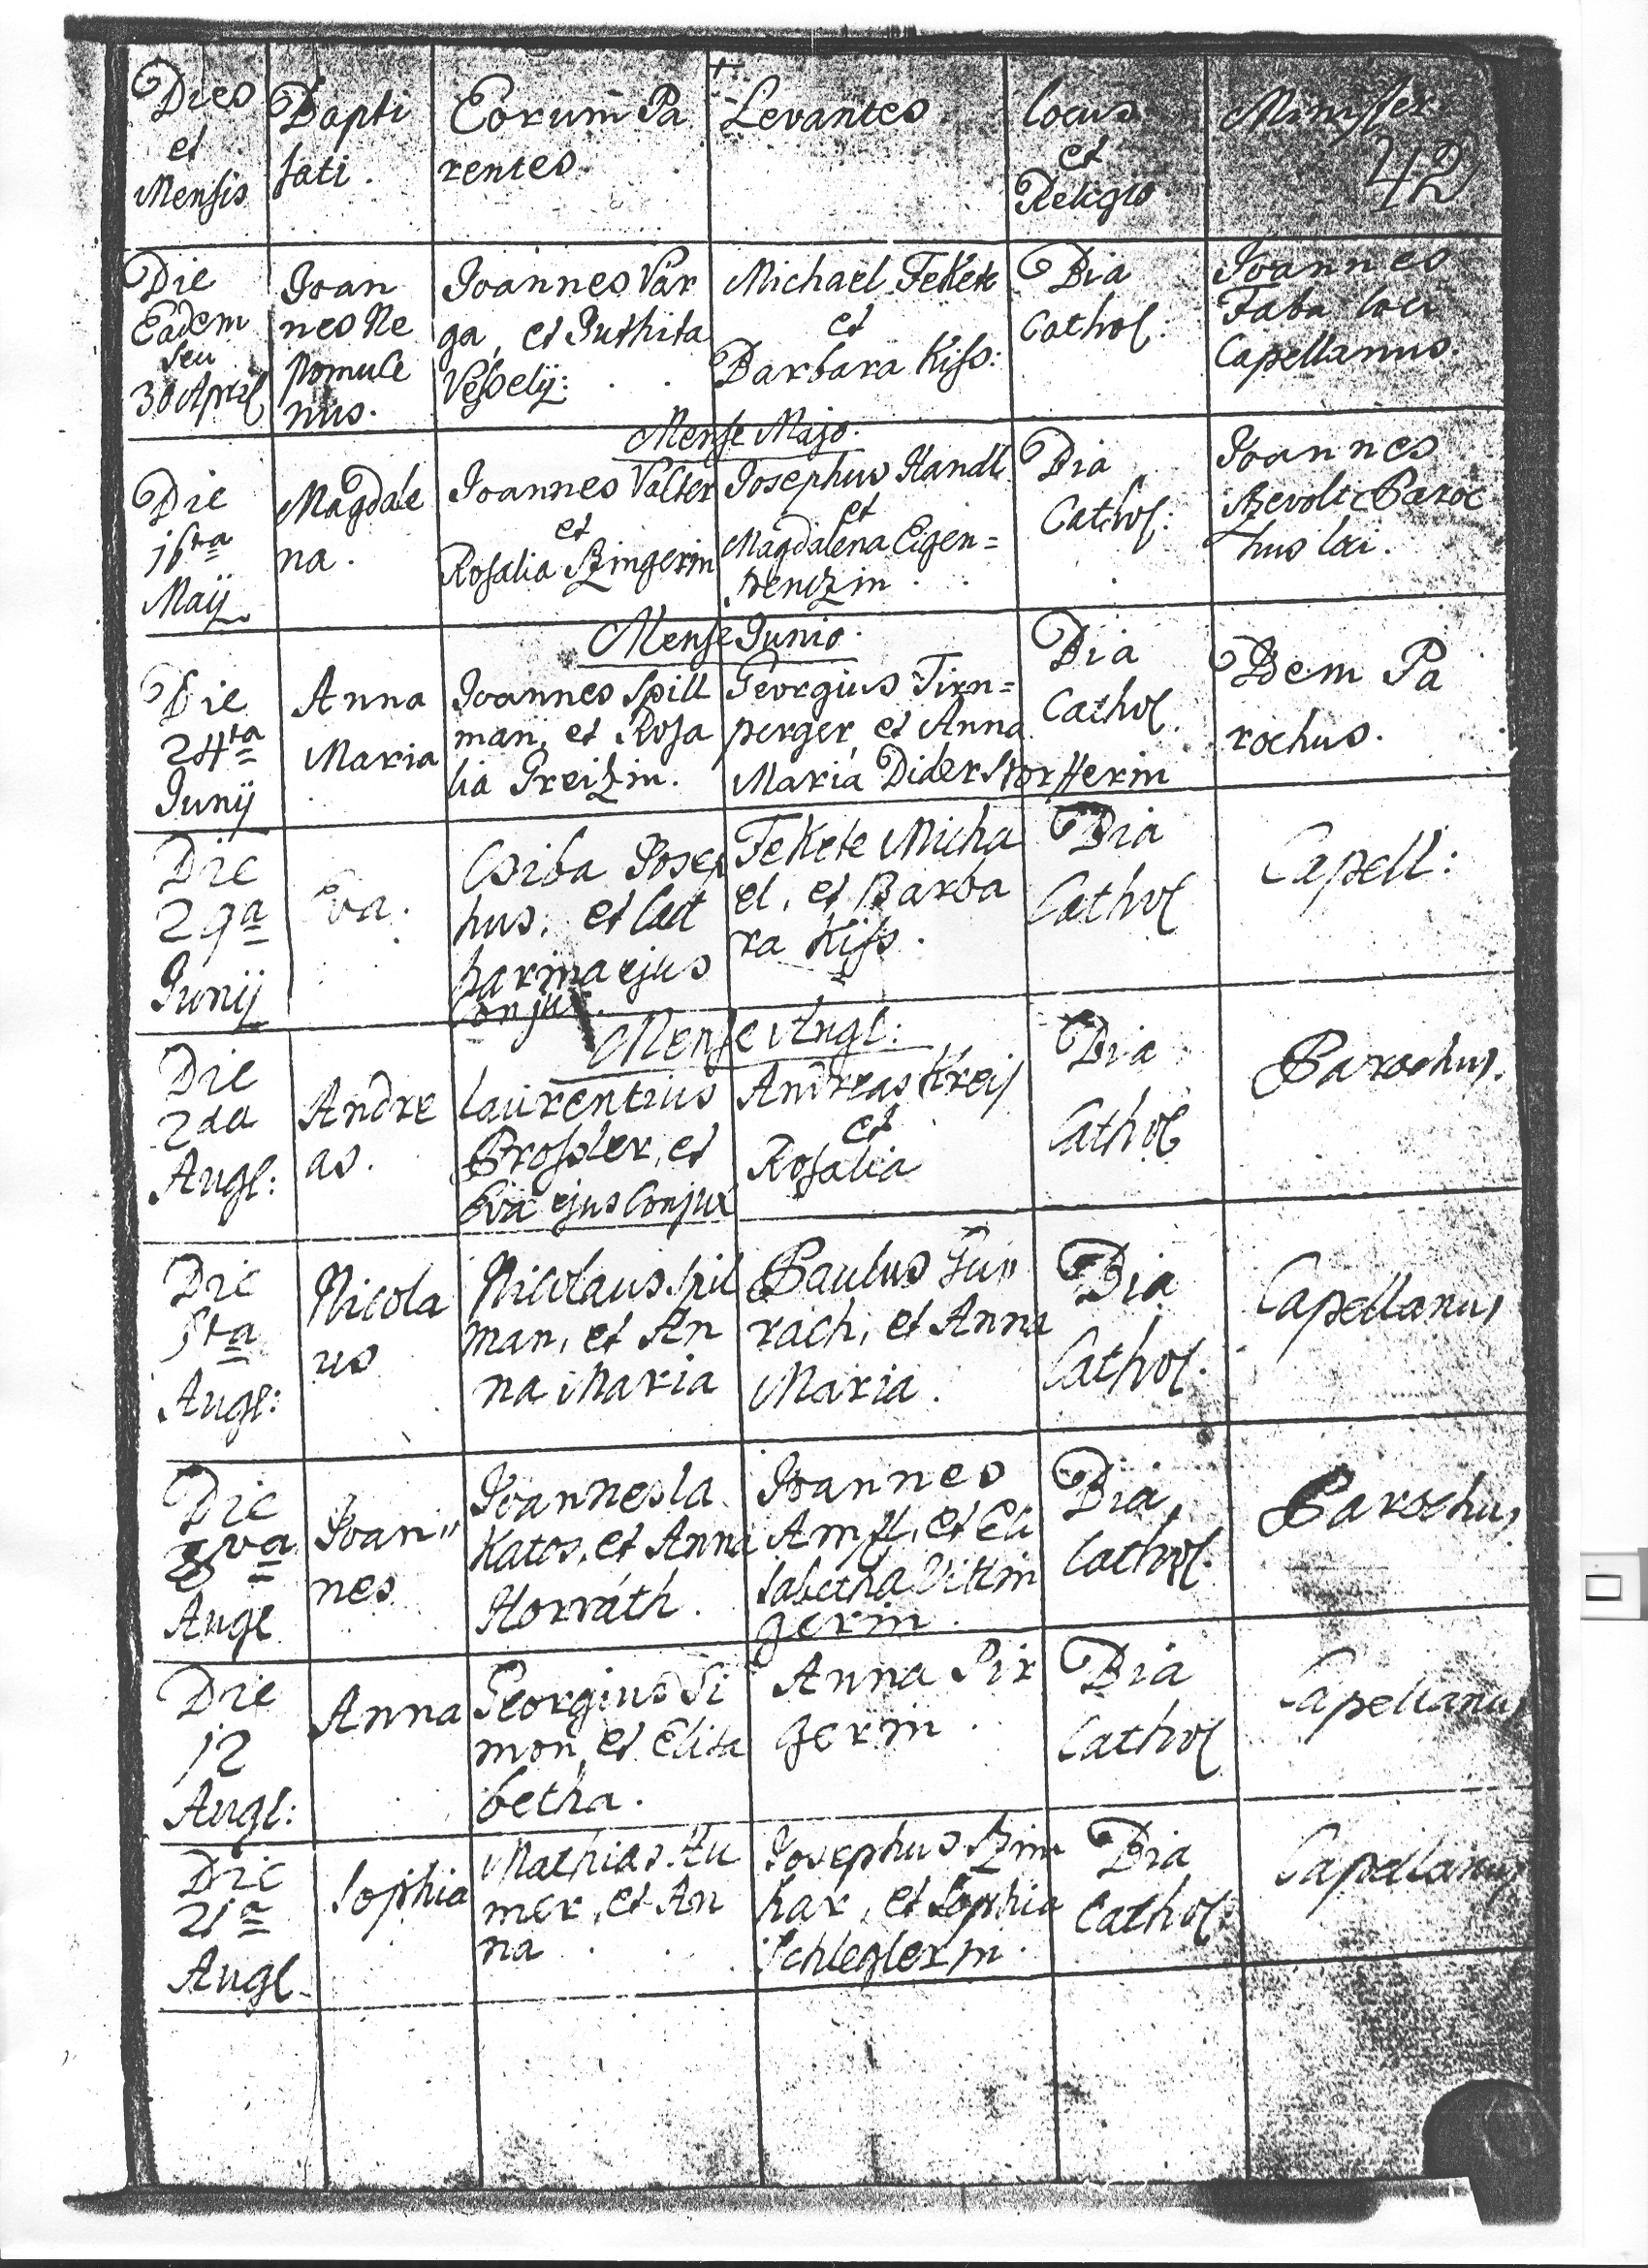 Dies
et
Mensis
Bapti
sati.
Eorum Pa
rentes.
Levantes
locus
et
Religio
Minister
42
Die
Eadem
seu
30 April
Joan
nes Ne
pomuce
nus.
Joannes Var
ga, et Juthita
Veſselÿ:
Michael Fekete
et
Barbara Kiſs:
Bia
Cathol:
Joannes
Faba loci
Capellanus.
Mense Majo.
Die
16ta
Maij
Magdale
na.
Joannes Valter
et
Rosalia Szingerin
Josephus Handl
et
Magdalena Eigen=
Bia
Cathol:
Joannes
Paroc
hus loci.
Mense Junio.
Die
24ta
Junÿ
Anna
Maria
Joannes Spill
man, et Rosa
lia Greitzin.
Georgius Tirn=
perger, et Anna
Maria Diderstorfferin
Bia
Cathol
Idem Pa
rochus.
Die
29a
Junÿ
Eva.
Csiba Josep
hus, et Cat
harina ejus
Conjux.
Fekete Micha
el, et Barba
ra Kiſs.
Bia
Cathol
Capell:
Mense Augl:
Die
2da
Augl:
Andre
as.
Laurentius
Proſsler, et
Eva ejus Conjux
Andreas Kreis
et
Rosalia
Bia
Cathol
Parochus.
Die
5ta
Augl:
Nicola
us
Nicolaus Spil
man, et An
na Maria
Paulus
rach, et Anna
Maria.
Bia
Cathol.
Capellanus
Die
8va
Augl
Joan"
nes
Joannes la
katos, et Anna
Horváth.
Joannes
et Eli
sabetha Vittin
gerin.
Bia
Cathol.
Parochus
Die
12
Augl:
Anna
Georgius Si
mon, et Elisa
betha.
Anna Pir
gerin.
Bia
Cathol
Capellanus
Die
21a
Augl.
Sophia
Mathias Au
mer, et An
na
Josephus Szim
har, et Sophia
Schleglerin.
Bia
Cathol:
Capellanus